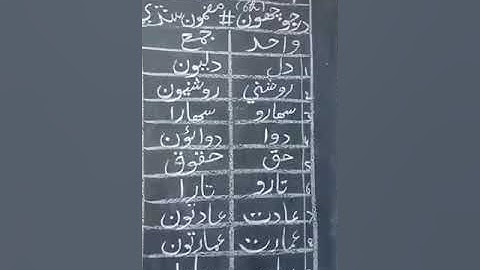 درجو ڇهون # مضمون سنڌي
واحد جمع
1 دل دليون
2 روشني روشنيون
3 سهارو سهارا
4 دوا دوائون
5 حق حقوق
6 تارو تارا
7 عادت عادتون
8 عمارت عمارتون